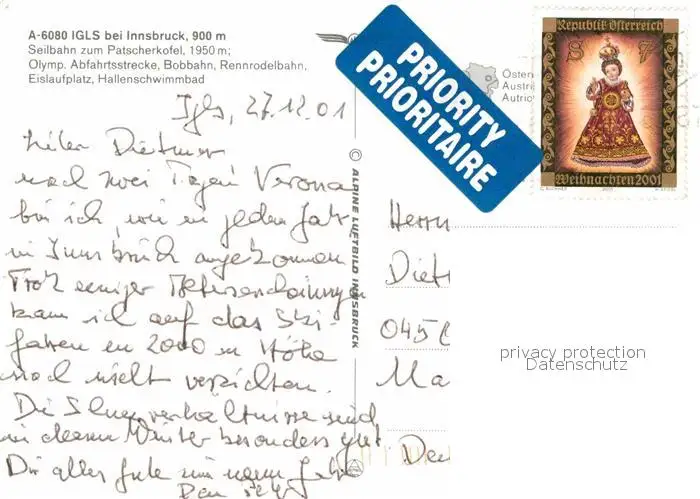 A-6080 IGLS bei Innsbruck, 900 m
Seilbahn zum Patscherkofel, 1950 m;
Olymp. Abfahrtsstrecke, Bobbahn, Rennrodelbahn,
Eislaufplatz, Hallenschwimmbad
Igls, 27.12.01
Lieber Dietmar
nach zwei Tagen Verona
bin ich, wie in jedem Jahr
in Innsbruck angekommen
Trotz einiger
kann ich auf das Ski-
fahren in 2000 m Höhe
noch nicht verzichten.
Die Schneeverhältnisse sind
in diesem Winter besonders gut
Dir alles Gute im neuen Jahr
Dein
© ALPINE LUFTBILD INNSBRUCK
PRIORITY
PRIORITAIRE
Österr
Austri
Autric
Republik Österreich
S 7
Weihnachten 2001
Herrn
Diet
045
Ma
Deu
privacy protection
Datenschutz